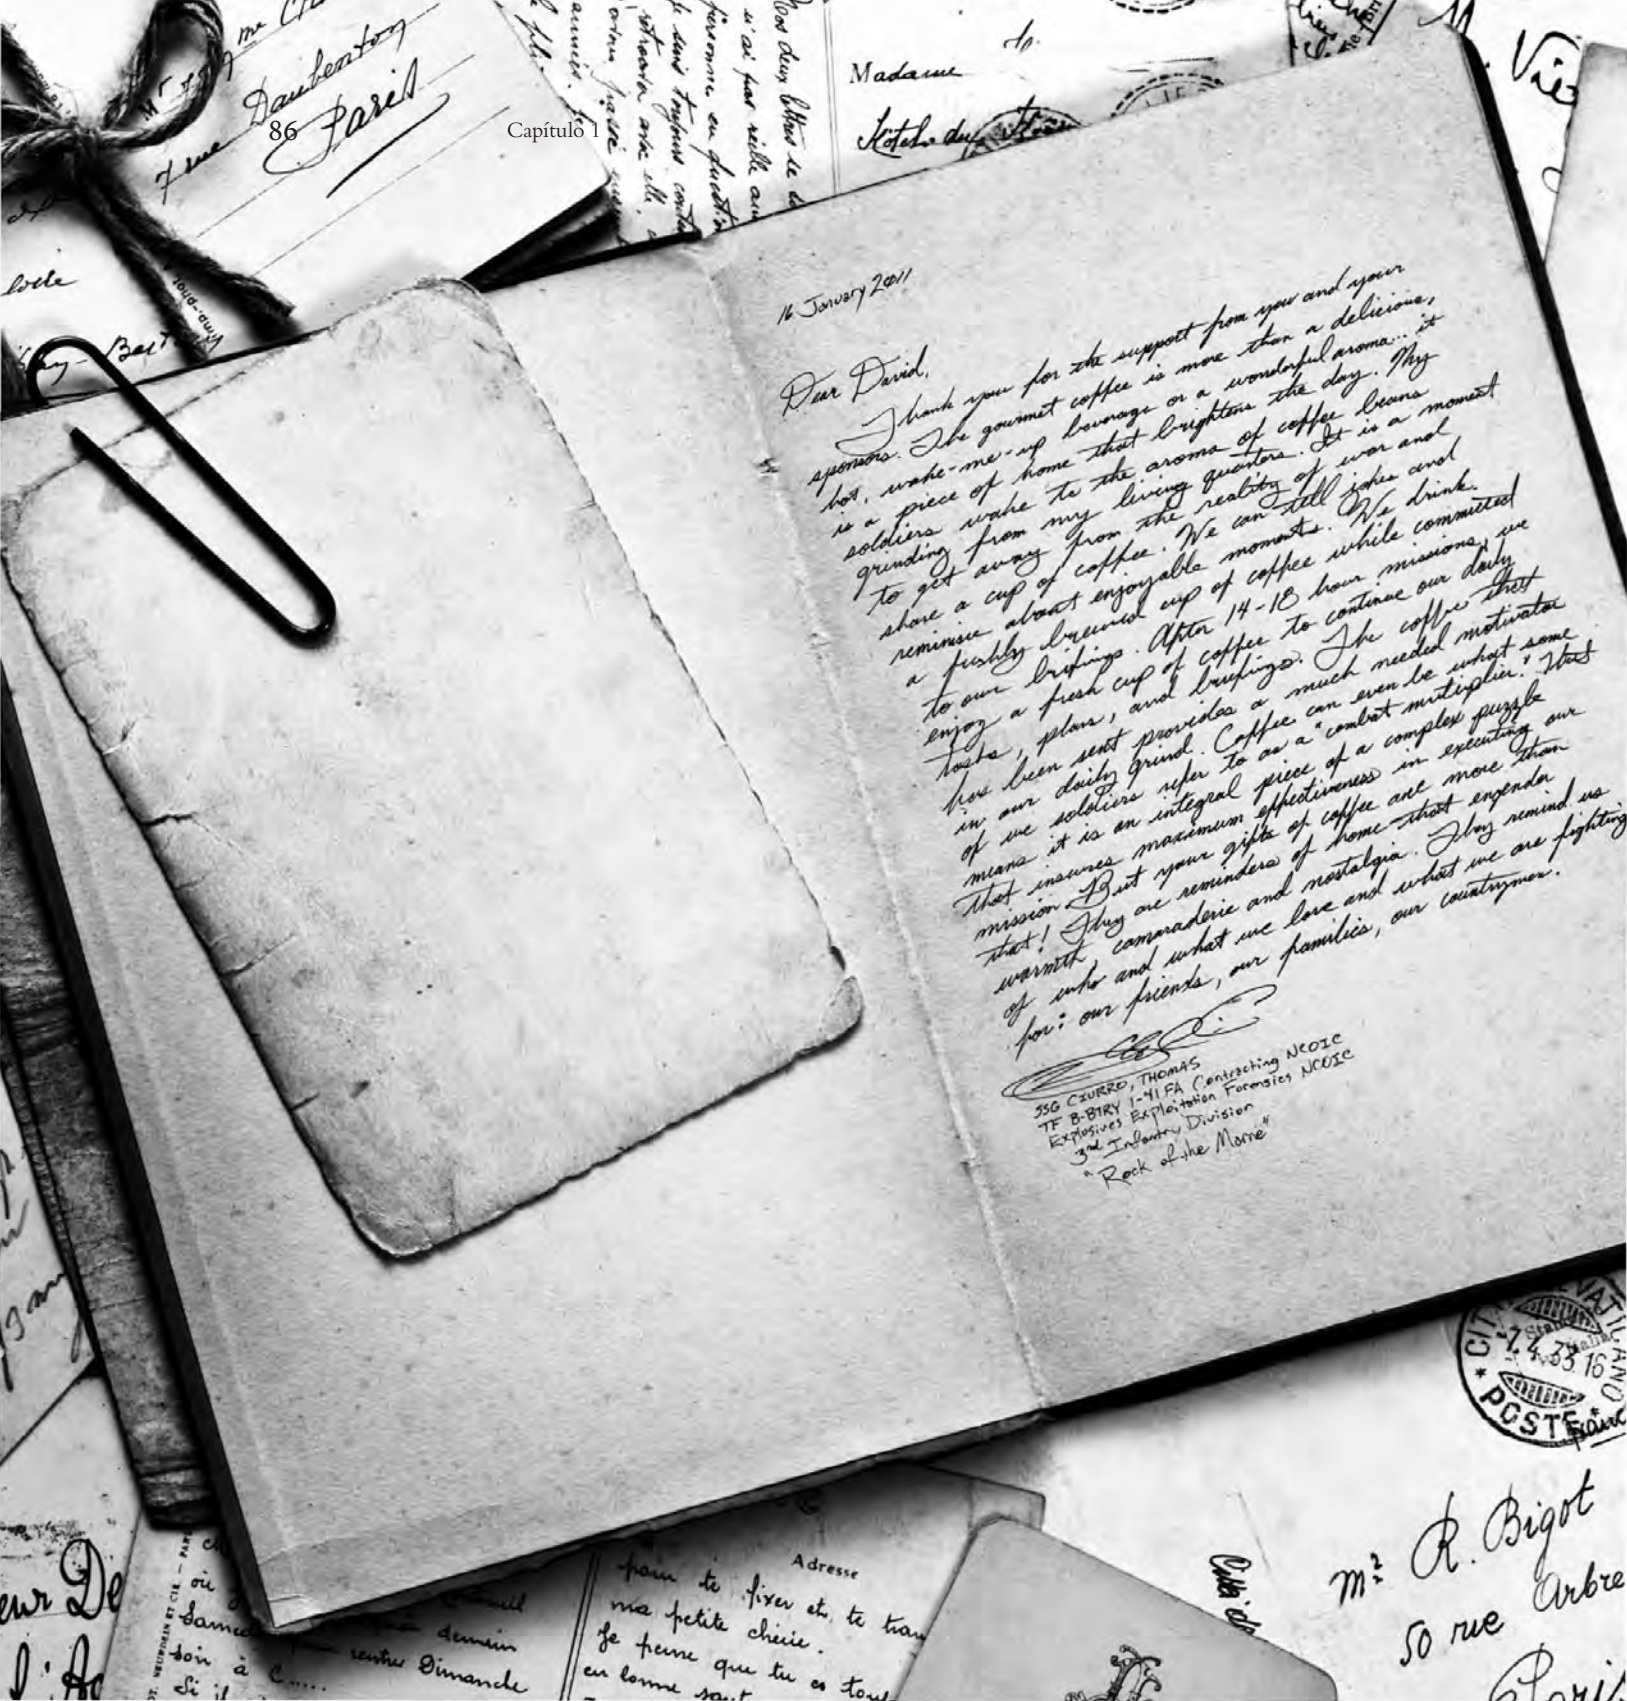 Daubenton
7 rue
Paris
86
Capítulo 1
Madame
Hotel du
16 January 2011
Dear David,
Thank you for the support from you and your
sponsors. The gourmet coffee is more than a delicious,
hot, wake-me-up beverage or a wonderful aroma... it
is a piece of home that brightens the day. My
soldiers wake to the aroma of coffee beans
grinding from my living quarters. It is a moment
to get away from the reality of war and
share a cup of coffee. We can tell jokes and
reminisce about enjoyable moments. We drink
a freshly brewed cup of coffee while committed
to our briefings. After 14-18 hour missions, we
enjoy a fresh cup of coffee to continue our daily
tasks, plans, and briefings. The coffee that
has been sent provides a much needed motivator
in our daily grind. Coffee can even be what some
of we soldiers refer to as a "combat multiplier." That
means it is an integral piece of a complex puzzle
that insures maximum effectiveness in executing our
mission. But your gifts of coffee are more than
that! They are reminders of home that engender
warmth, camaraderie and nostalgia. They remind us
of who and what we love and what we are fighting
for: our friends, our families, our countrymen.
SSG CIURRO, THOMAS
TF B-BTRY 1-41 FA Contracting NCOIC
Explosives Exploitation Forensics NCOIC
3rd Infantry Division
"Rock of the Marne"
POSTE
Adresse
pour te fixer et te
ma petite chérie.
Je pense que tu es
demain
rentrer Dimanche
Samedi
son à
R. Bigot
50 rue
Arbre